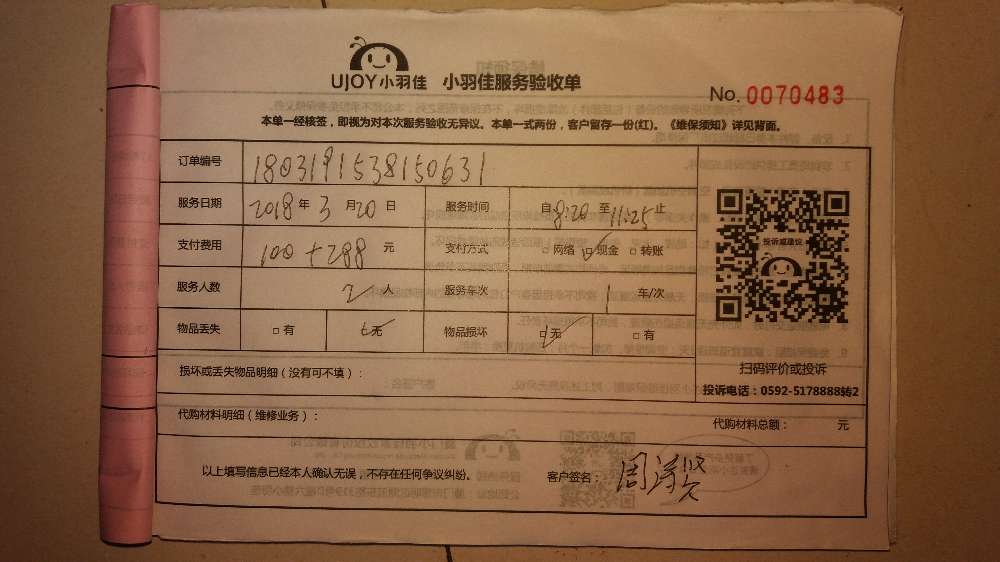 UJOY小羽佳 小羽佳服务验收单
No. 0070483
本单一经核签，即视为对本次服务验收无异议。本单一式两份，客户留存一份(红)。《维保须知》详见背面。
订单编号 1803191538150631
服务日期 2018年3月20日 服务时间 自8:20至11:25止
支付费用 100+288元 支付方式 □网络 ☑现金 □转账
服务人数 2人 服务车次 1 车/次
物品丢失 □有 ☑无 物品损坏 ☑无 □有
投诉或建议
扫码评价或投诉
投诉电话：0592-5178888转2
损坏或丢失物品明细（没有可不填）：
代购材料明细（维修业务）： 代购材料总额： 元
以上填写信息已经本人确认无误，不存在任何争议纠纷。 客户签名：周